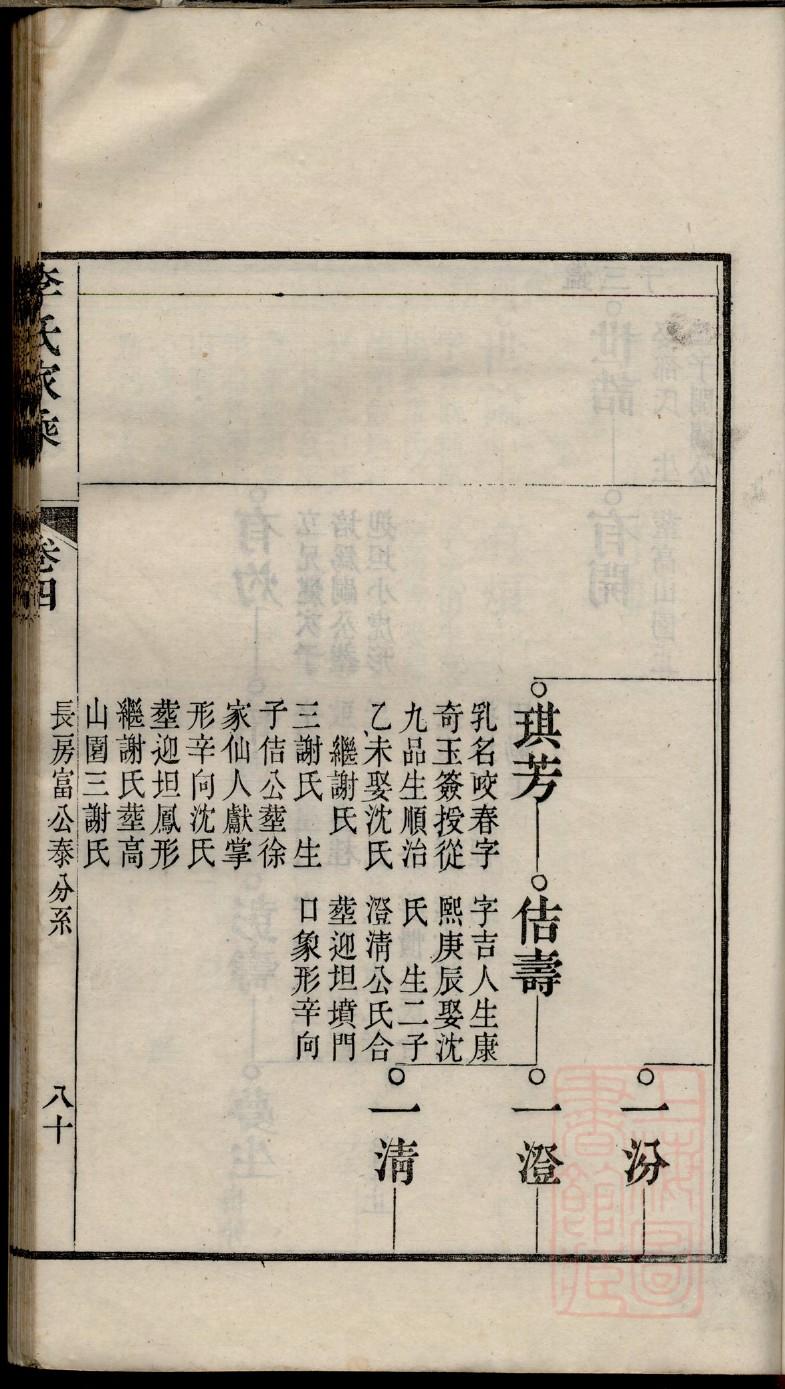 一汾
琪芳
乳名咬春字
奇玉簽授從
九品生順治
乙未娶沈氏
繼謝氏
三謝氏 生
子佶公塟徐
家仙人獻掌
形辛向沈氏
塟迎坦鳳形
繼謝氏塟高
山園三謝氏
佶壽
字吉人生康
熙庚辰娶沈
氏 生二子
澄清公氏合
塟迎坦墳門
口象形辛向
一澄
一清
李氏家乘
卷四
長房富公泰分系
八十